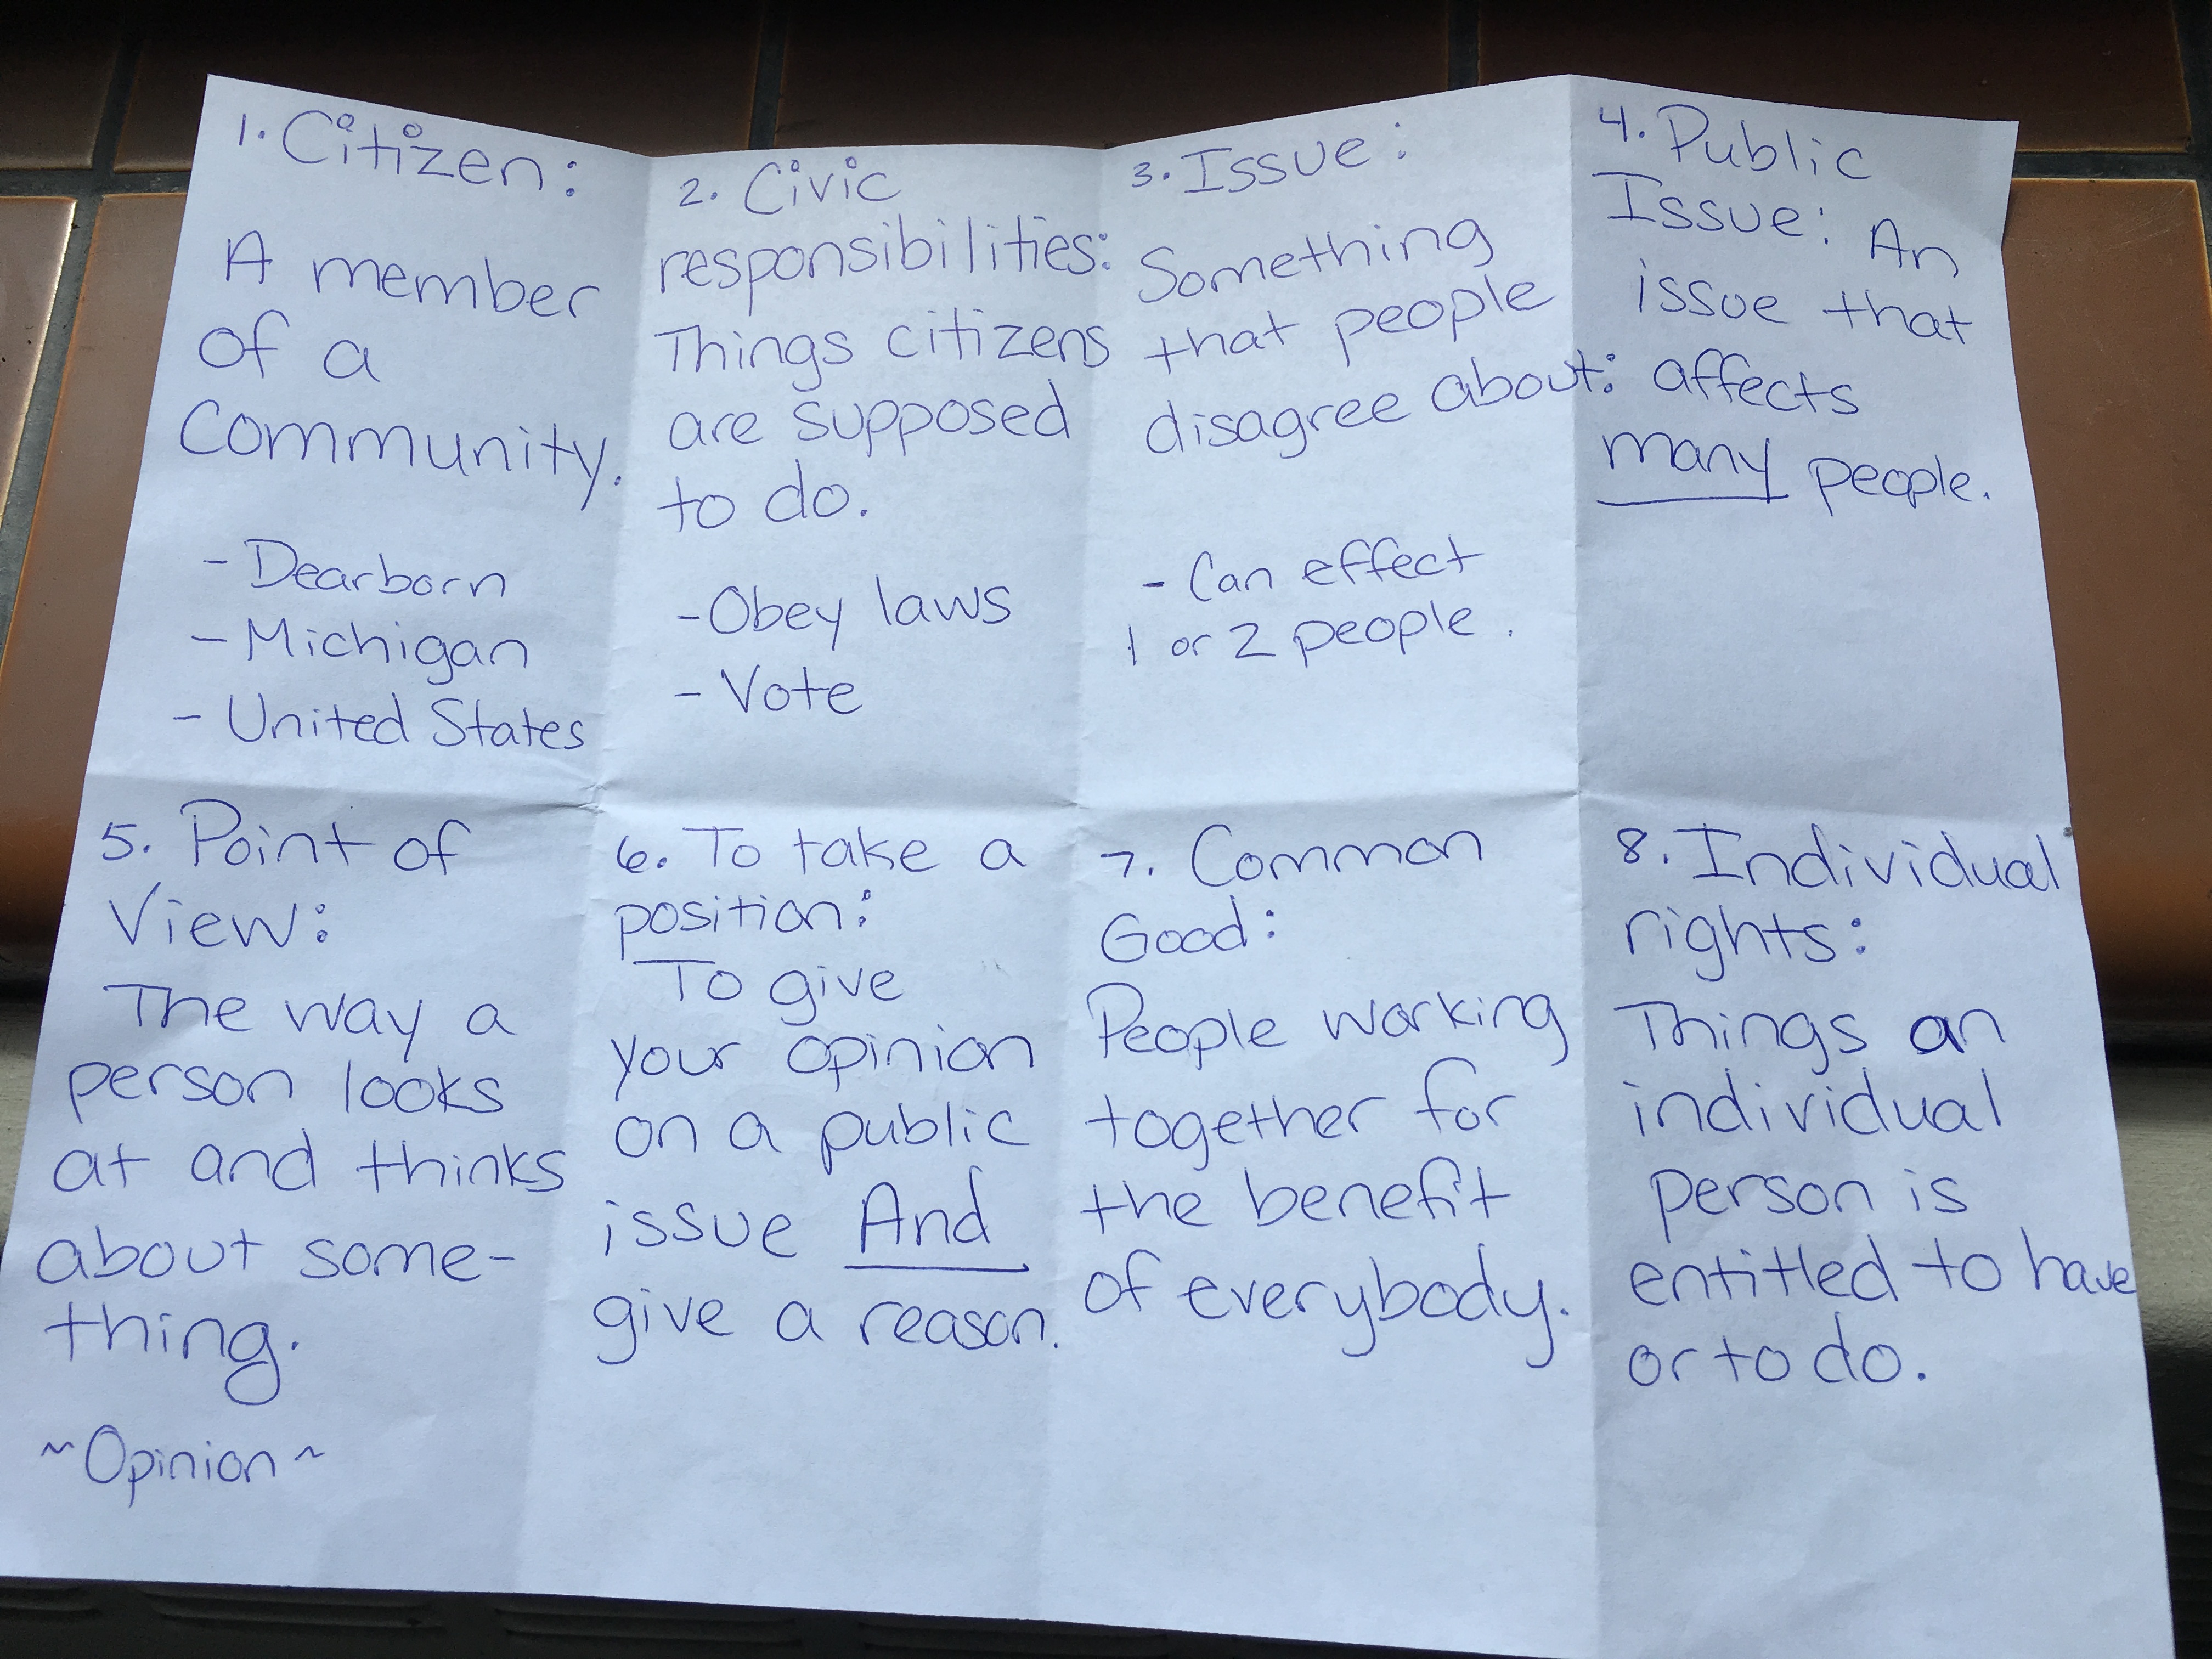 1. Citizen:
A member
of a
Community.
- Dearborn
- Michigan
- United States
2. Civic
responsibilities:
Things citizens
are supposed
to do.
- Obey laws
- Vote
3. Issue:
Something
that people
disagree about:
- Can effect
1 or 2 people.
4. Public
Issue: An
issue that
affects
many people.
5. Point of
View:
The way a
person looks
at and thinks
about some-
thing.
~Opinion~
6. To take a
position:
To give
your opinion
on a public
issue And
give a reason.
7. Common
Good:
People working
together for
the benefit
of everybody.
8. Individual
rights:
Things an
individual
person is
entitled to have
or to do.